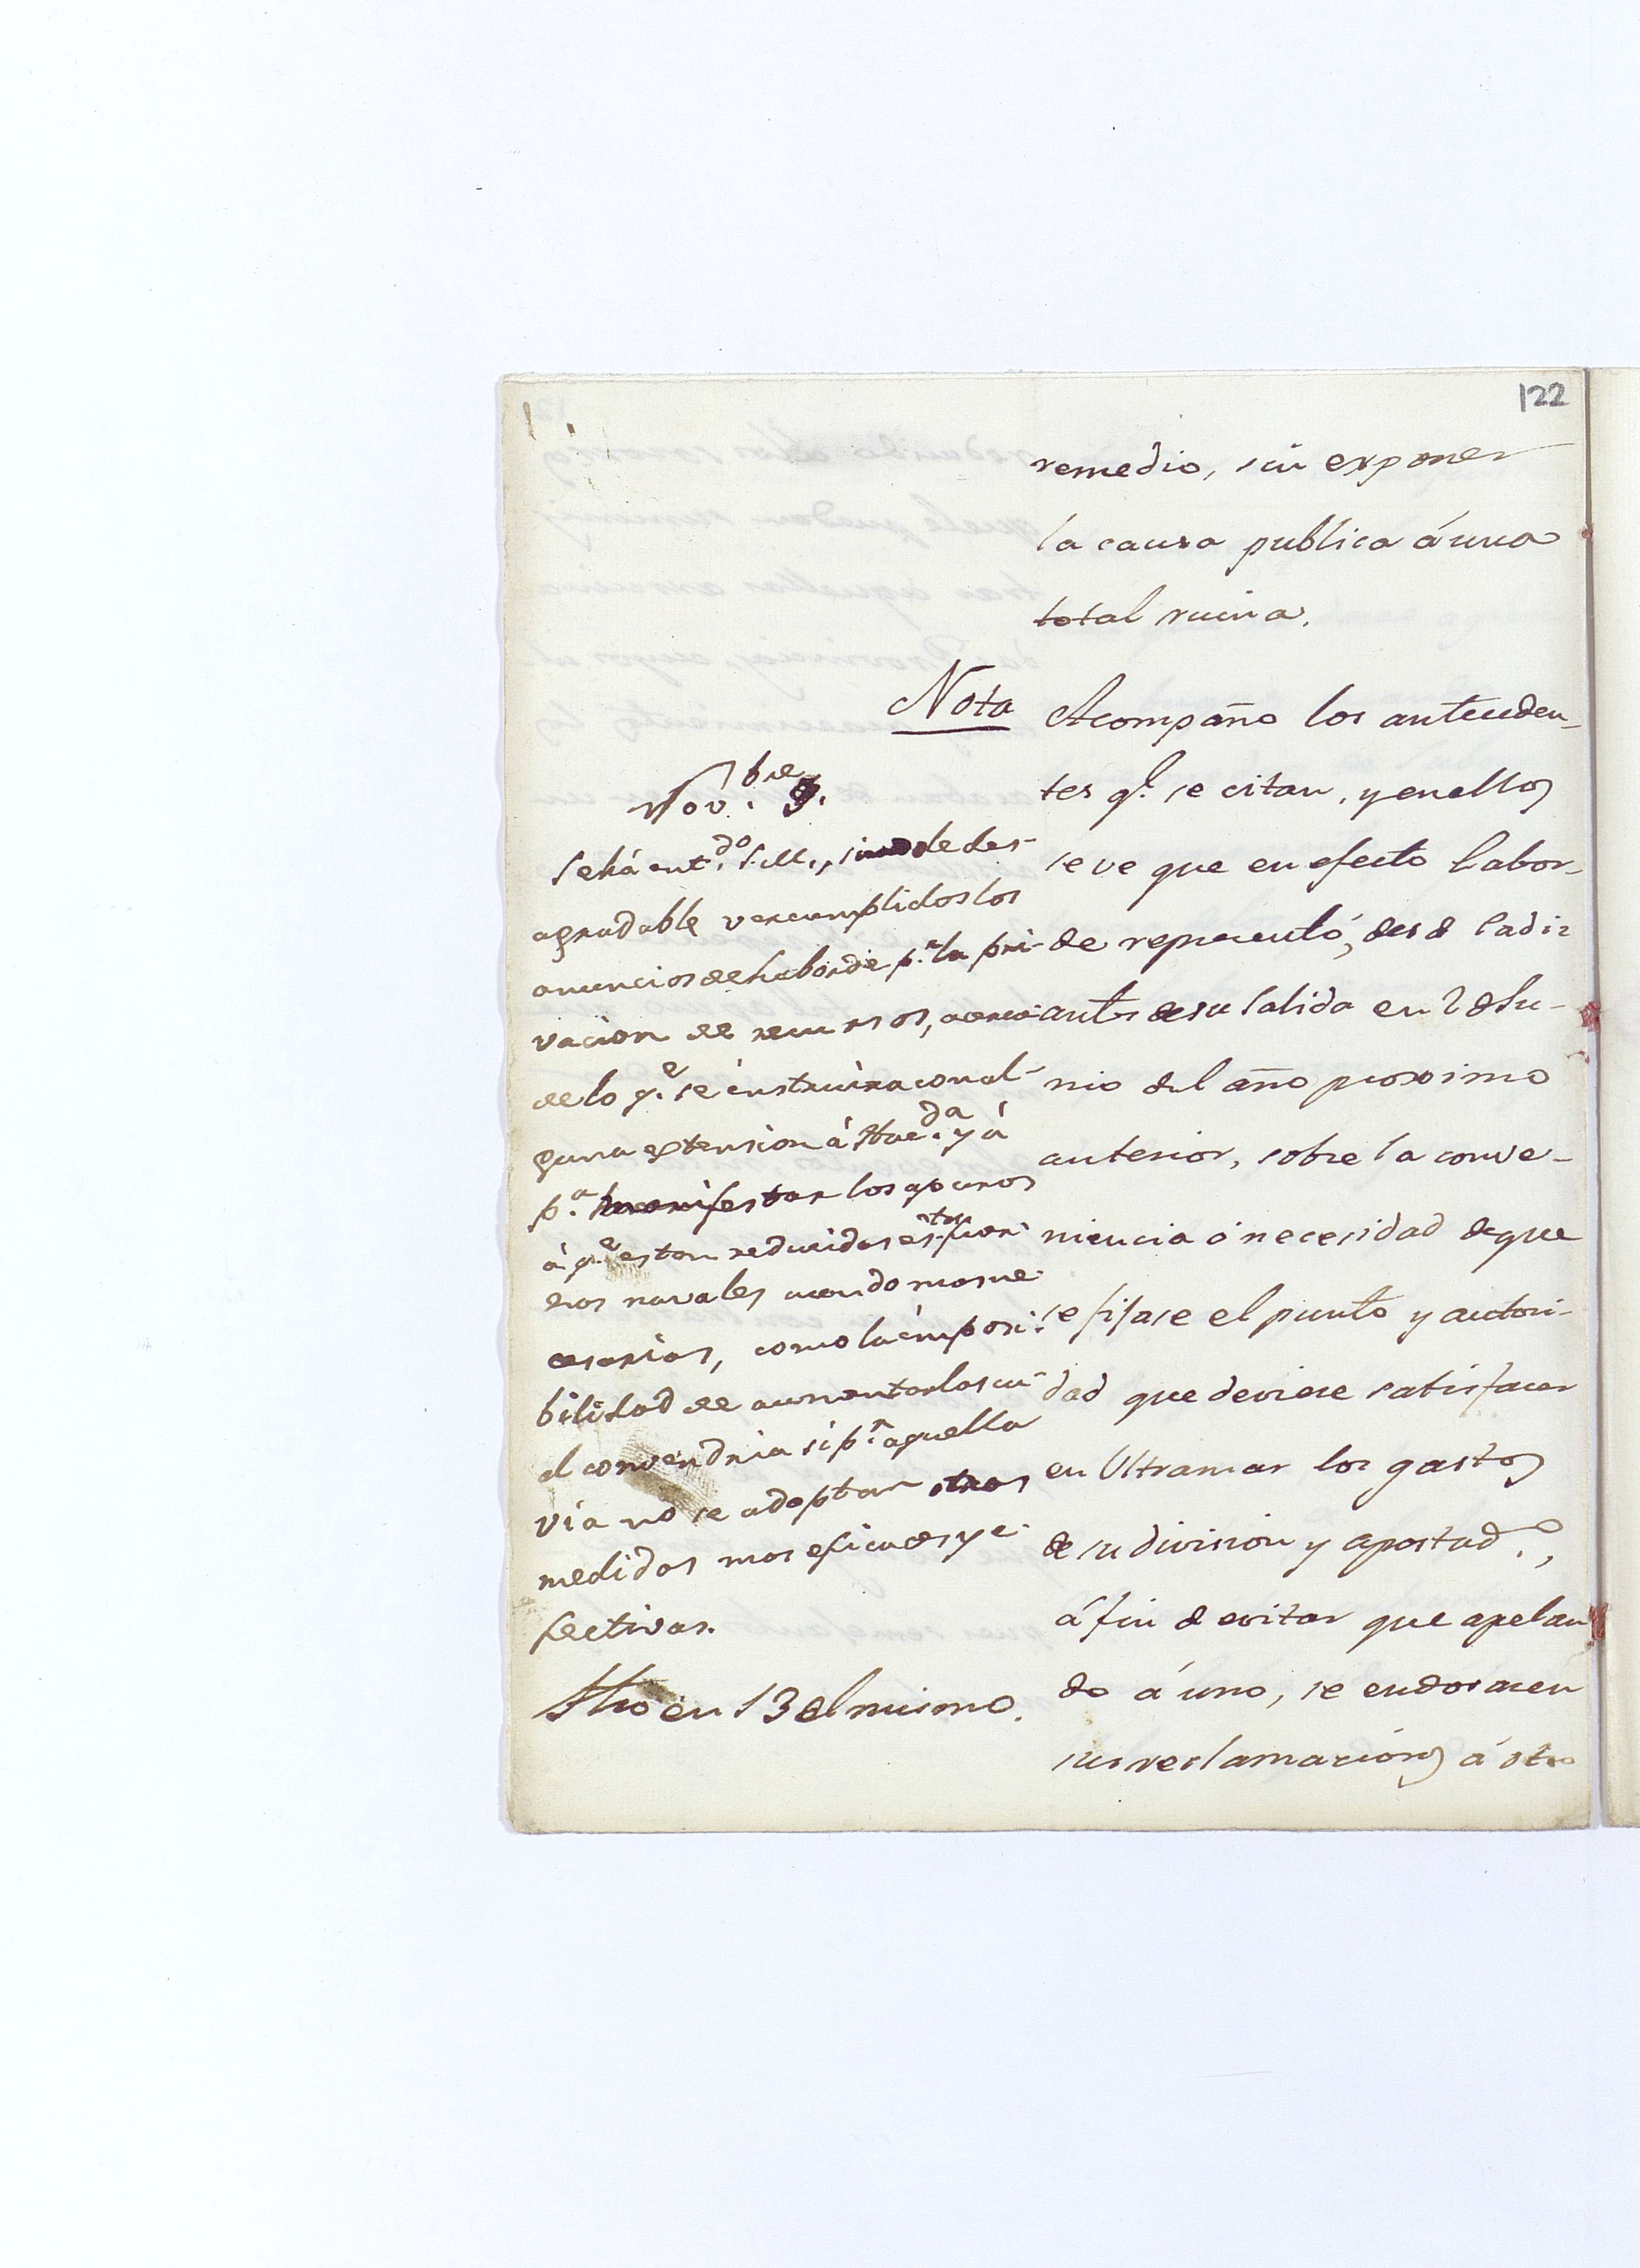 122
remedio, sin exponer
la causa publica á una
total ruina.
Nota
Acompaño los anteceden-
tes q.e se citan, y en ellos
se ve que en efecto Labor-
de representó, desde Cadiz
antes de su salida en 2 de Ju-
nio del año proximo
anterior, sobre la conve-
niencia ó necesidad de que
se fijase el punto y autori-
dad que deviese satisfacer
en Ultramar los gastos
de su division y apostad.o,
á fin de evitar que apelan
do á uno, se endosasen
sus reclamaciones á otro
Nov.bre 9.
Se há ent.do S.M., siendole des-
agradable ver cumplidos los
anuncios de Laborde p.r la pri-
vacion de recursos, acerca
de lo q.e se instruirá con al-
guna extension á Hac.da y á
p.a manifestar los apuros
á q.e estan reducidas estas fuer-
zas navales cuando mas ne-
cesarias, como la imposi-
bilidad de aumentarlas cu-
al convendria si p.r aquella
via no se adoptan otras
medidas mas eficaces y e-
fectivas.
Fho en 13 del mismo.